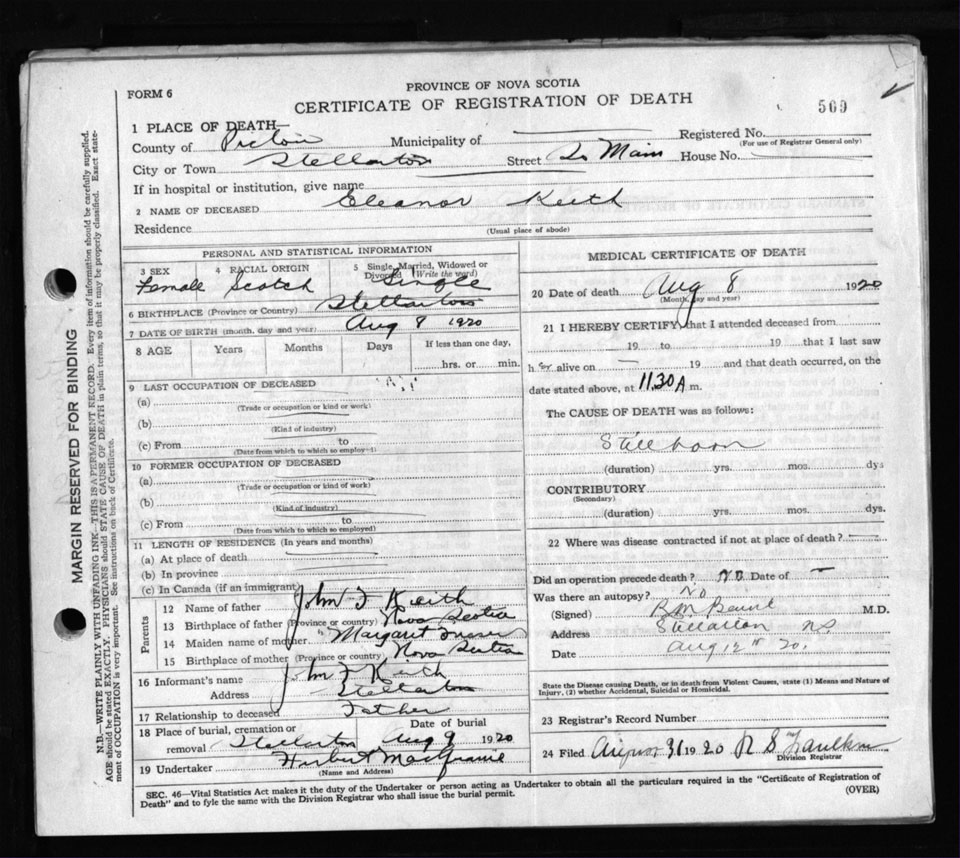 PROVINCE OF NOVA SCOTIA
FORM 6
CERTIFICATE OF REGISTRATION OF DEATH
569
1 PLACE OF DEATH—
County of Pictou Municipality of Registered No.
(For use of Registrar General only)
City or Town Stellarton Street So Main House No.
If in hospital or institution, give name
2 NAME OF DECEASED Eleanor Keith
Residence
(Usual place of abode)
PERSONAL AND STATISTICAL INFORMATION
3 SEX 4 RACIAL ORIGIN 5 Single, Married, Widowed or Divorced (Write the word)
Female Scotch Single
6 BIRTHPLACE (Province or Country) Stellarton
7 DATE OF BIRTH (month, day and year) Aug 8 1920
8 AGE Years Months Days If less than one day,
hrs. or min.
9 LAST OCCUPATION OF DECEASED
(a)
(Trade or occupation or kind or work)
(b)
(Kind of industry)
(c) From to
(Date from which to which so employed)
10 FORMER OCCUPATION OF DECEASED
(a)
(Trade or occupation or kind of work)
(b)
(Kind of industry)
(c) From to
(Date from which to which so employed)
11 LENGTH OF RESIDENCE (In years and months)
(a) At place of death
(b) In province
(c) In Canada (if an immigrant)
Parents
12 Name of father John F Keith
13 Birthplace of father (Province or country) Nova Scotia
14 Maiden name of mother Margaret Fraser
15 Birthplace of mother (Province or country) Nova Scotia
16 Informant's name John F Keith
Address Stellarton
17 Relationship to deceased Father
18 Place of burial, cremation or removal Stellarton Date of burial Aug 9 1920
19 Undertaker Herbert
(Name and Address)
MEDICAL CERTIFICATE OF DEATH
20 Date of death Aug 8 1920
(Month, day and year)
21 I HEREBY CERTIFY that I attended deceased from
19 to 19 that I last saw
h er alive on — 19 and that death occurred, on the
date stated above, at 11.30 A m.
The CAUSE OF DEATH was as follows:
Stillborn
(duration) yrs. mos. dys
CONTRIBUTORY
(Secondary)
(duration) yrs. mos. dys.
22 Where was disease contracted if not at place of death?
Did an operation precede death? No Date of —
Was there an autopsy? No
(Signed) M.D.
Address Stellarton N.S.
Date Aug 12th 20.
State the Disease causing Death, or in death from Violent Causes, state (1) Means and Nature of
Injury, (2) whether Accidental, Suicidal or Homicidal.
23 Registrar's Record Number
24 Filed August 1920 R S Faulkner
Division Registrar
SEC. 46—Vital Statistics Act makes it the duty of the Undertaker or person acting as Undertaker to obtain all the particulars required in the "Certificate of Registration of
Death" and to fyle the same with the Division Registrar who shall issue the burial permit.
(OVER)
MARGIN RESERVED FOR BINDING
N.B.—WRITE PLAINLY WITH UNFADING INK—THIS IS A PERMANENT RECORD. Every item of information should be carefully supplied.
AGE should be stated EXACTLY. PHYSICIANS should STATE CAUSE OF DEATH in plain terms, so that it may be properly classified. Exact state-
ment of OCCUPATION is very important. See instructions on back of Certificate.